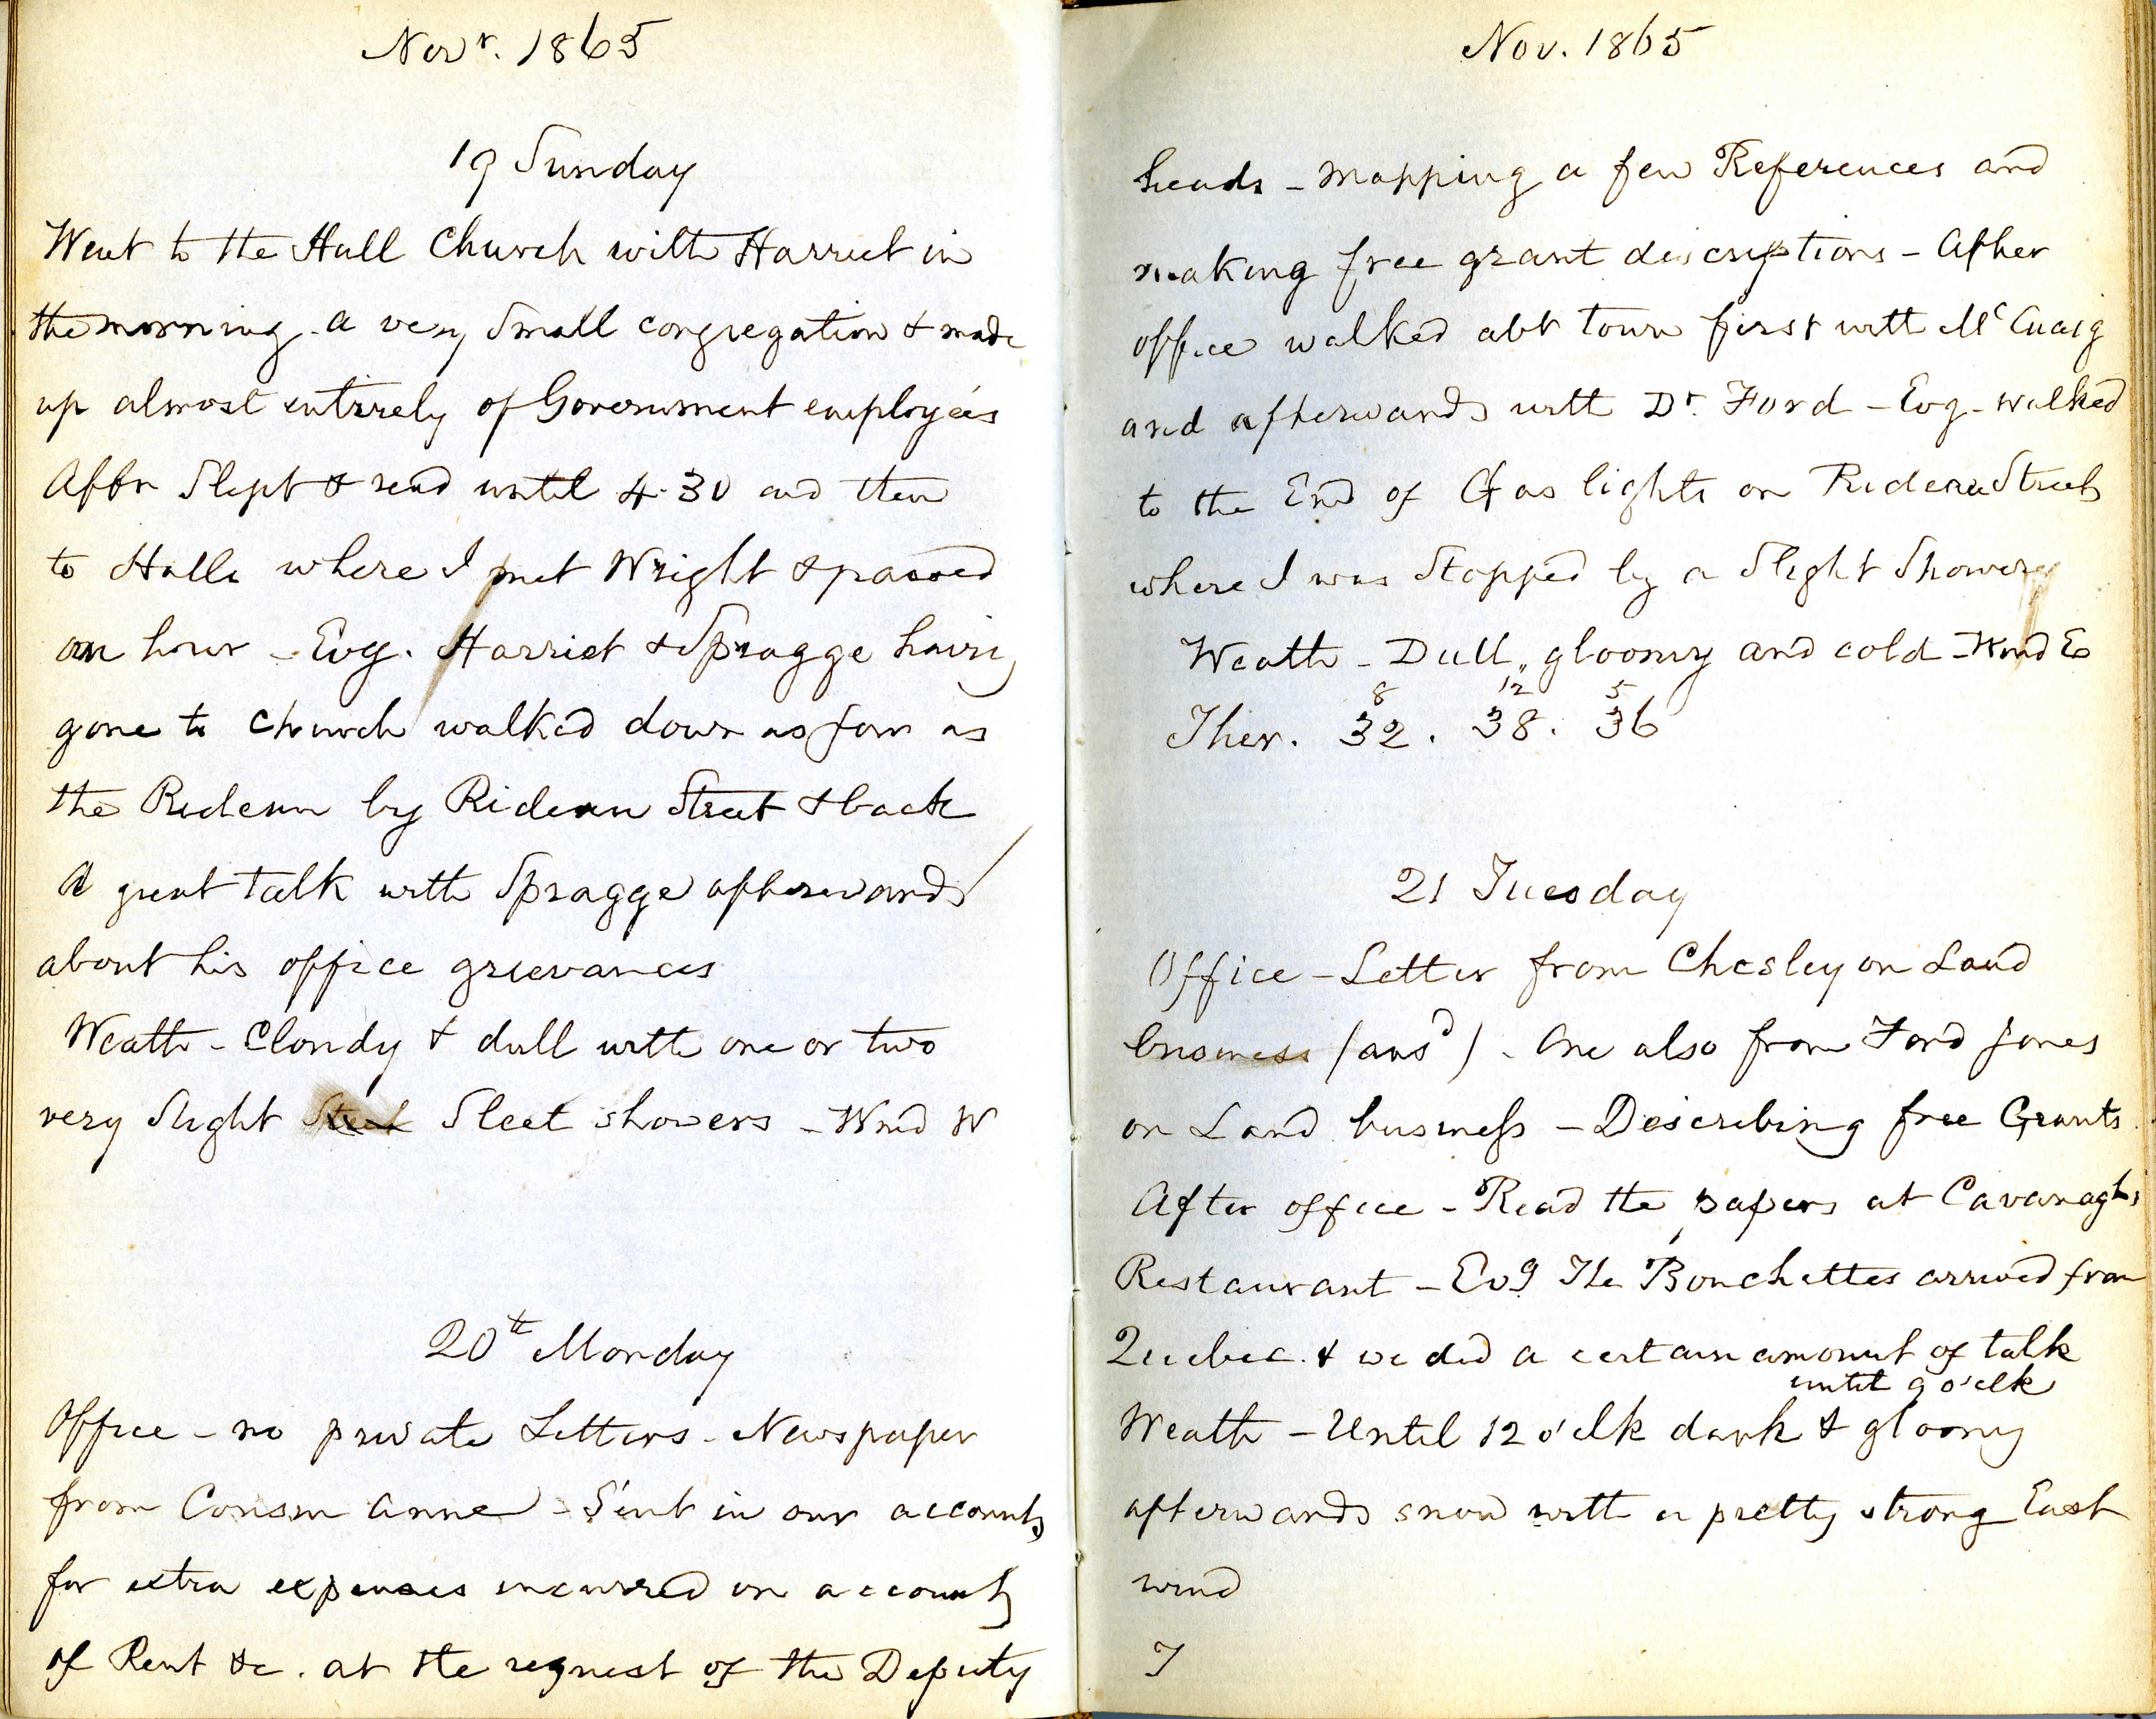 Novr. 1865
19 Sunday
Went to the Hull Church with Harriet in
the morning - a very small congregation & made
up almost entirely of Government employées
Aftn Slept & read until 4.30 and then
to Halls where I met Wright & passed
an hour - Evg. Harriet & Spragge having
gone to church walked down as far as
the Rideau by Rideau Street & back
A great talk with Spragge afterwards
about his office grievances
Weath - Cloudy & dull with one or two
very slight Sleet showers - Wind W
20th Monday
Office - no private Letters - Newspaper
from Cousin Anne - Sent in our accounts
for extra expenses incurred on account
of Rent &c. at the request of the Deputy
Nov. 1865
heads - mapping a few References and
making free grant descriptions - After
office walked abt town first with McCuaig
and afterwards with Dr. Ford - Evg - walked
to the End of Gas lights on Rideau Street
where I was Stopped by a Slight Shower
Weath - Dull, gloomy and cold - Wind E
8 12 5
Ther. 32. 38. 36
21 Tuesday
Office - Letter from Chesley on Land
business (ansd) - One also from Ford Jones
on Land business - Describing free Grants.
After office - Read the papers at Cavanaghs
Restaurant - Evg The Bouchettes arrived from
Quebec. & we did a certain amount of talk
until 9 o'clk
Weath - Until 12 o'clk dark & gloomy
afterwards snow with a pretty strong East
wind
T